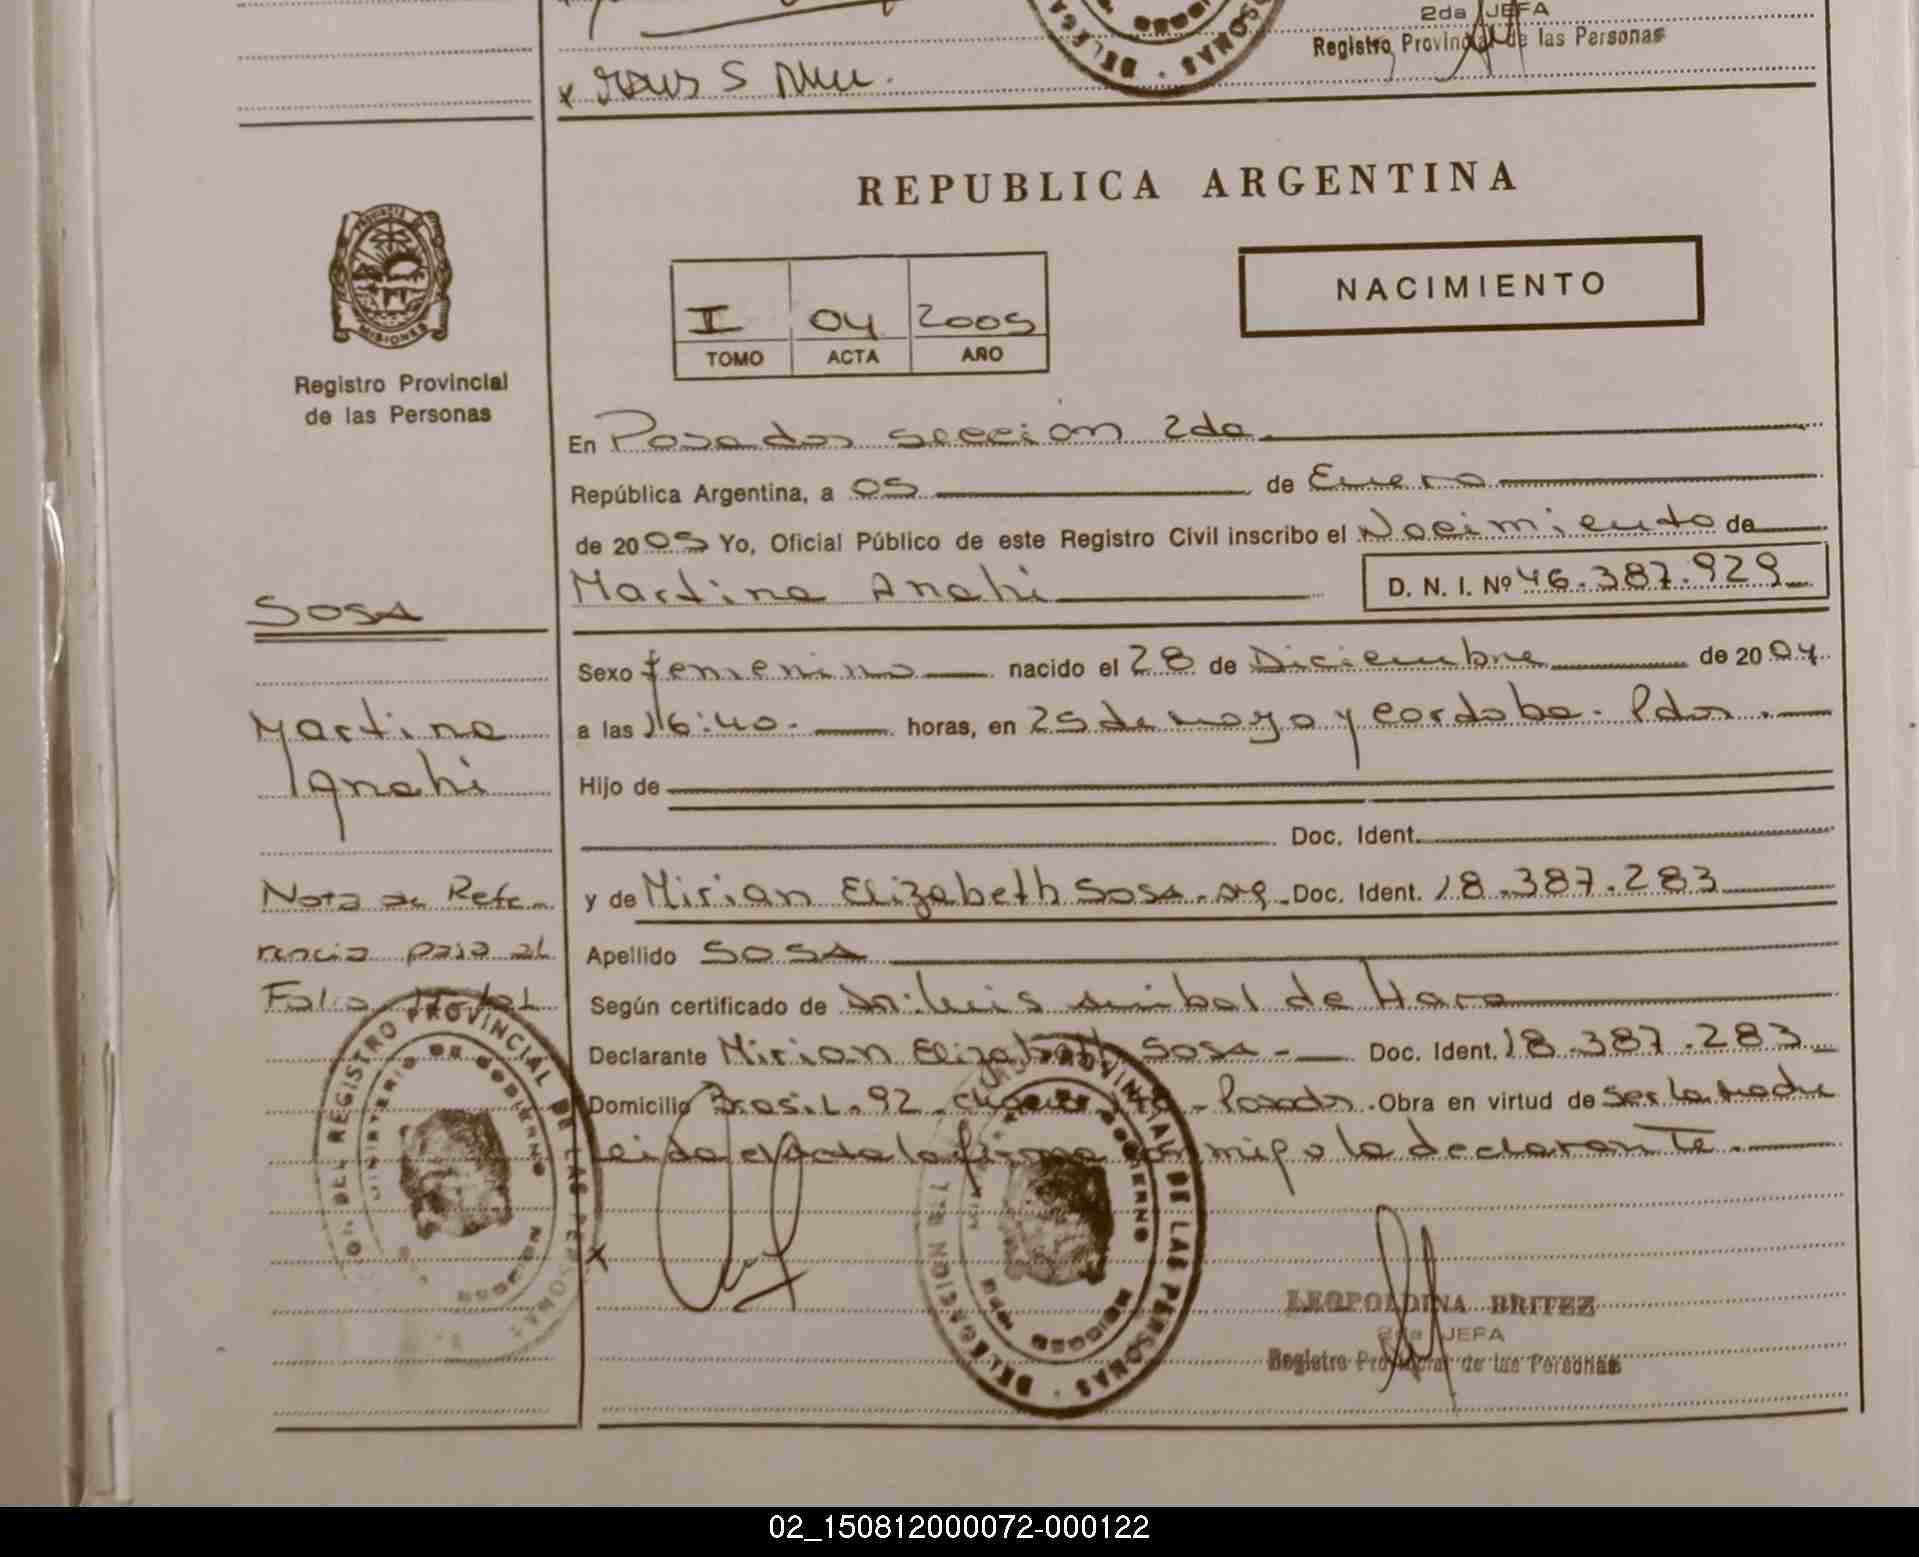 2da JEFA
Registro Provincial de las Personas
x
REPUBLICA ARGENTINA
NACIMIENTO
I 04 2005
TOMO ACTA AÑO
Registro Provincial
de las Personas
En Posadas seccion 2da
República Argentina, a 05 de Enero
de 2005 Yo, Oficial Público de este Registro Civil inscribo el Nacimiento de
Martina Anahi D. N. I. Nº 46.387.929
SOSA
Sexo femenino nacido el 28 de Diciembre de 2004
Martina
Anahi
a las 16:40.- horas, en 25 de mayo y cordoba. Pdas.
Hijo de
Doc. Ident.
Nota de Refe-
rencia pasa al
Folio
y de Mirian Elizabeth Sosa. arg. Doc. Ident. 18.387.283
Apellido SOSA
Según certificado de Dr: Luis anibal de Haro
Declarante Mirian Elizabeth Sosa - Doc. Ident. 18.387.283
Domicilio Brasil. 92 - Posadas. Obra en virtud de ser la madre
Leida el Acta la firma con migo la declarante.
x
REGISTRO PROVINCIAL DE LAS PERSONAS
MINISTERIO DE GOBIERNO
MISIONES
DELEGACION PROVINCIAL DE LAS PERSONAS
LEOPOLDINA BRITEZ
2da JEFA
Registro Provincial de las Personas
02_150812000072-000122